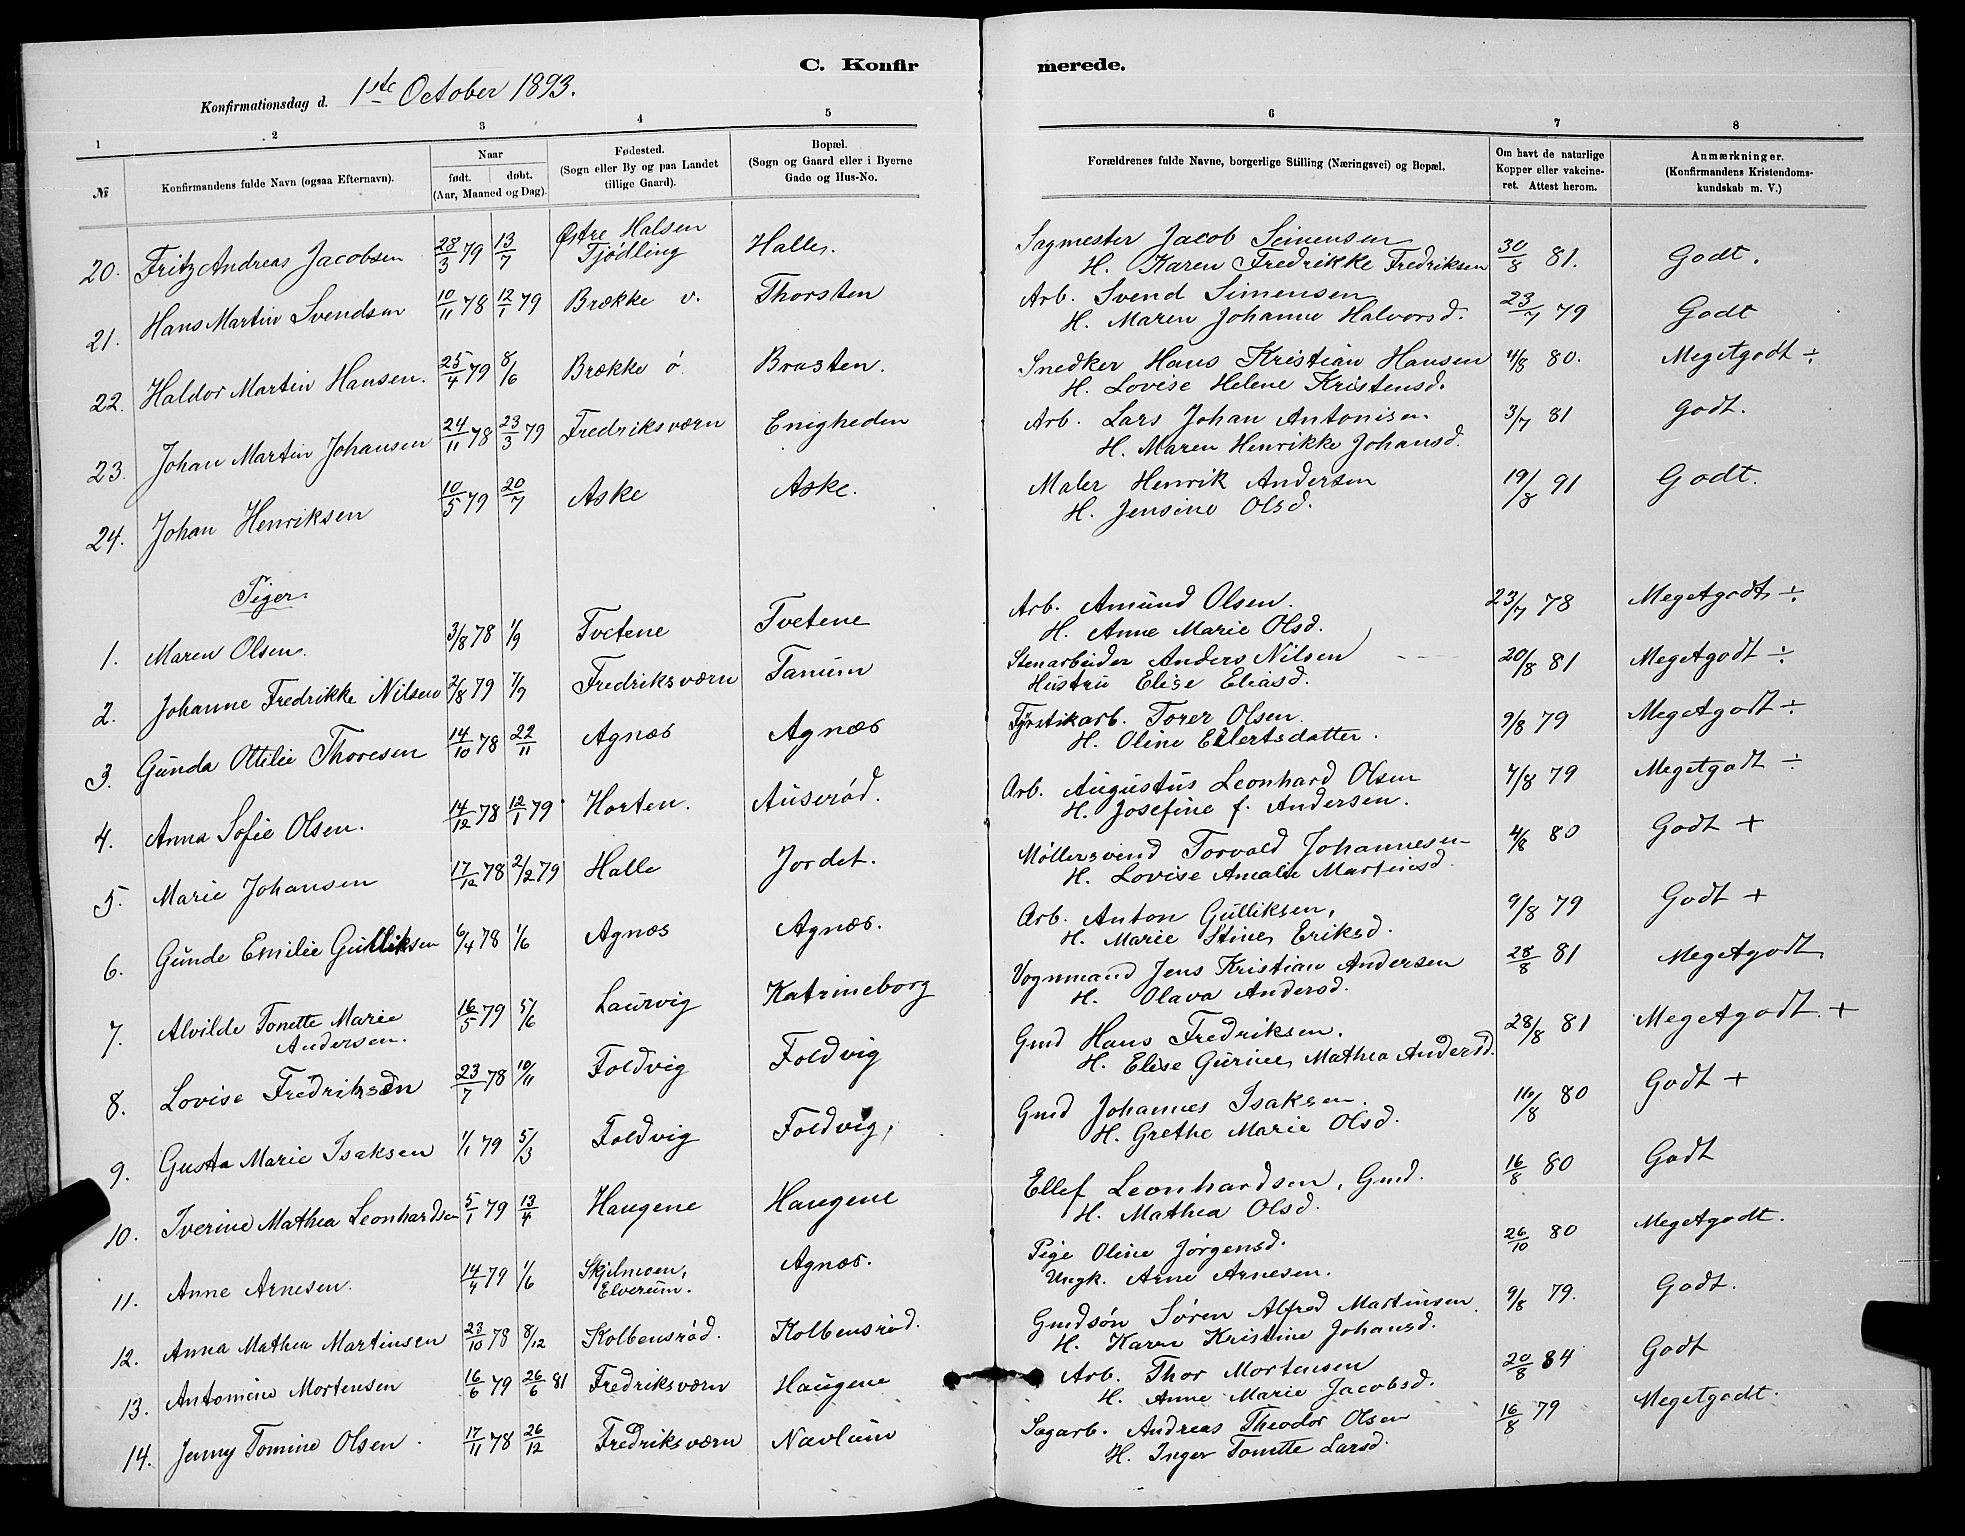 C. Konfirmerede.
Konfirmationsdag d. 1ste October 1893.
1 2 3 4 5 6 7 8
№ Konfirmandens fulde Navn (ogsaa Efternavn). Naar født. døbt. (Aar, Maaned og Dag). Fødested. (Sogn eller By og paa Landet tillige Gaard). Bopæl. (Sogn og Gaard eller i Byerne Gade og Hus-No. Forældrenes fulde Navne, borgerlige Stilling (Næringsvei) og Bopæl. Om havt de naturlige Kopper eller vakcineret. Attest herom. Anmærkninger. (Konfirmandens Kristendomskundskab m. V.)
20. Fritz Andreas Jacobsen 28/3 79 13/7 Østre Halsen Tjødling Halle. Sagmester Jacob Simensen 30/8 81. Godt.
H. Karen Fredrikke Fredriksen
21. Hans Martin Svendsen 10/11 78 12/1 79 Brække v. Thorsten Arb. Svend Simensen 23/7 79 Godt
H. Maren Johanne Halvorsd.
22. Haldor Martin Hansen. 25/4 79 8/6 Brække ø Brasten. Snedker Hans Kristian Hansen 4/8 80. Megetgodt ÷
H. Lovise Helene Kristensd.
23. Johan Martin Johansen 24/11 78 23/3 79 Fredriksværn Enigheden Arb. Lars Johan Antonisen 3/7 81 Godt.
H. Maren Henrikke Johansd.
24. Johan Henriksen 10/5 79 20/7 Aske Aske. Maler Henrik Andersen 19/8 91 Godt.
H. Jensine Olsd.
Piger.
1. Maren Olsen. 3/8 78 1/9 Tvetene Tvetene Arb. Amund Olsen. 23/7 78 Megetgodt ÷
H. Anne Marie Olsd.
2. Johanne Fredrikke Nilsen 2/8 79 7/9 Fredriksværn Tanum Stenarbeider Anders Nilsen 20/8 81 Megetgodt ÷
Hustru Elise Eliasd.
3. Gunda Ottilie Thoresen 14/10 78 22/11 Agnæs Agnæs Fyrstikarb. Torer Olsen. 9/8 79 Megetgodt ÷
H. Oline Eilertsdatter.
4. Anna Sofie Olsen. 14/12 78 12/1 79 Horten. Auserød. Arb. Augustus Leonhard Olsen 7/8 79 Megetgodt ÷
H. Josefine f. Andersen.
5. Marie Johansen 17/12 78 2/2 79 Halle Jordet. Møllersvend Torvald Johannesen 4/8 80 Godt +
H. Lovise Amalie Martinsd.
6. Gunde Emilie Gulliksen 6/4 78 1/6 Agnæs Agnæs. Arb. Anton Gulliksen, 9/8 79 Godt +
H. Marie Stine Eriksd.
7. Alvilde Tonette Marie Andersen. 16/5 79 5/6 Laurvig Katrineborg Vognmand Jens Kristian Andersen 28/8 81 Megetgodt
H. Olava Andersd.
8. Lovise Fredriksen 23/7 78 10/11 Foldvig Foldvig Gmd Hans Fredriksen. 28/8 81 Megetgodt. +
H. Elise Gurine Mathea Andersd.
9. Gusta Marie Isaksen 1/1 79 5/3 Foldvig Foldvig, Gmd Johannes Isaksen. 16/8 80 Godt +
H. Grethe Marie Olsd.
10. Iverine Mathea Leonhardsen 5/1 79 13/4 Haugene Haugene Ellef Leonhardsen, Gmd. 16/8 80 Godt
H. Mathea Olsd.
11. Anne Arnesen. 14/4 79 1/6 Skjelmoen, Elverum. Agnæs. Pige Oline Jørgensd. 26/10 80 Megetgodt.
Ungk. Arne Arnesen.
12. Anna Mathea Martinsen 23/10 78 8/12 Kolbensrød. Kolbensrød. Gmdsøn Søren Alfred Martinsen. 9/8 79. Godt.
H. Karen Kristine Johansd.
13. Antomine Mortensen 16/6 79 26/6 81 Fredriksværn Haugene Arb. Thor Mortensen 20/8 84 Godt
H. Anne Marie Jacobsd.
14. Jenny Tomine Olsen. 17/11 78 26/12 Fredriksværn Navlum Sagarb. Andreas Theodor Olsen 16/8 79 Megetgodt.
H. Inger Tomette Larsd.